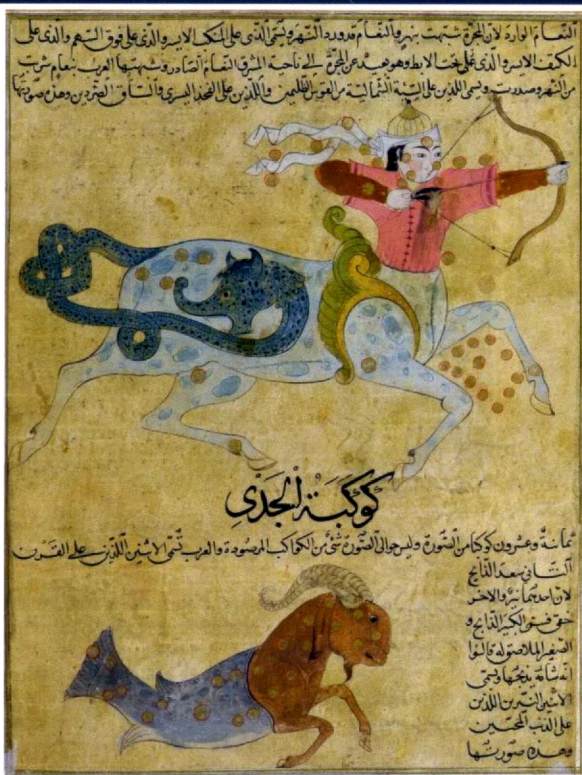 النعام الوارد لان المجرة شبهت بنهر والنعام قد ورد النهر ويسمى الذى على المنكب الايسر والذى على فوق السهم والذى على
الكتف الايسر والذى على تحت الابط وهو بعد عن المجرة الى ناحية المشرق النعام الصادر وشبهتها العرب بنعام شربت
من النهر وصدرت ويسمى اللذين على السية الشمالية من القوس الظليمين واللذين على الفخذ اليسرى والساق الصردين وهذه صورتها
كوكبة الجدى
ثمانية وعشرون كوكبا من الصورة وليس حوالى الصورة شئ من الكواكب المرصودة والعرب تسمى الاثنين اللذين على القرن
الثانى سعد الذابح
لان احدهما نير والاخر
خفى الكبير الذابح و
الصغير الملاصق له قالوا
انه شاته يذبحها وتسمى
الاثنين النيرين اللذين
على الذنب المحبين
وهذه صورتها